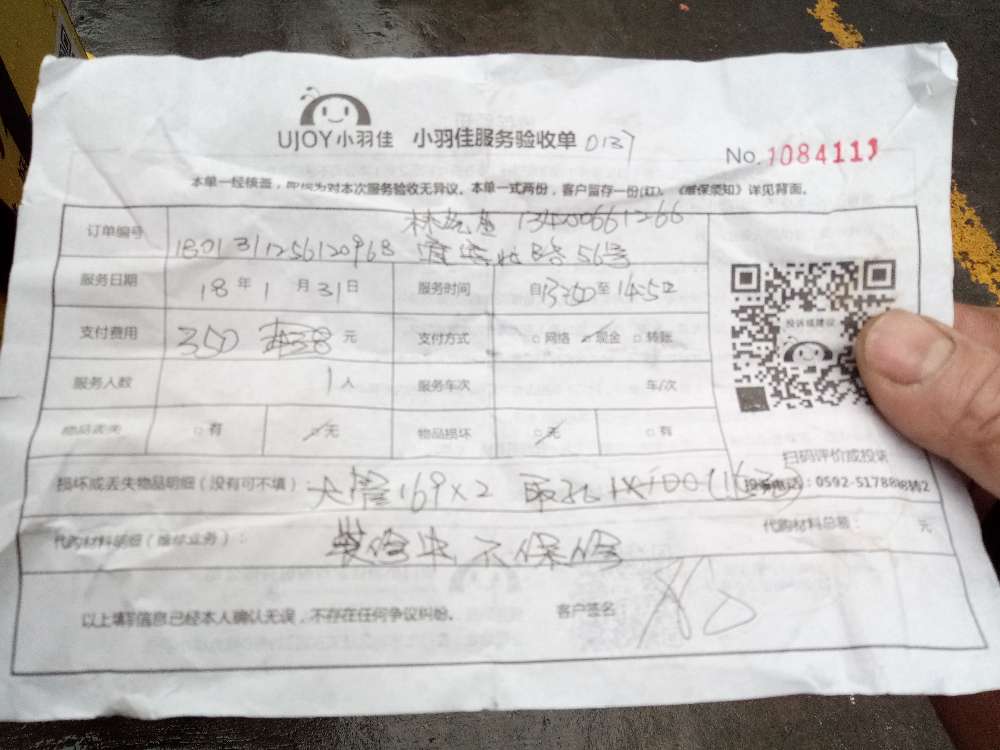 UJOY小羽佳 小羽佳服务验收单 0137
No.1084111
本单一经核查，即视为对本次服务验收无异议。本单一式两份，客户留存一份(红)。《维保须知》详见背面。
13400661266
订单编号 1801311256120968 56号
服务日期 18年1月31日 服务时间 自13:50至14:50
支付费用 350 元 支付方式 网络 现金 转账
服务人数 1人 服务车次 车/次
物品丢失 有 无 物品损坏 无 有
投诉或建议
扫码评价或投诉
损坏或丢失物品明细（没有可不填） 169×2 投诉电话：0592-5178888转2
代购材料明细（维修业务）： 装修中不保修 代购材料总额： 元
以上填写信息已经本人确认无误，不存在任何争议纠纷。 客户签名